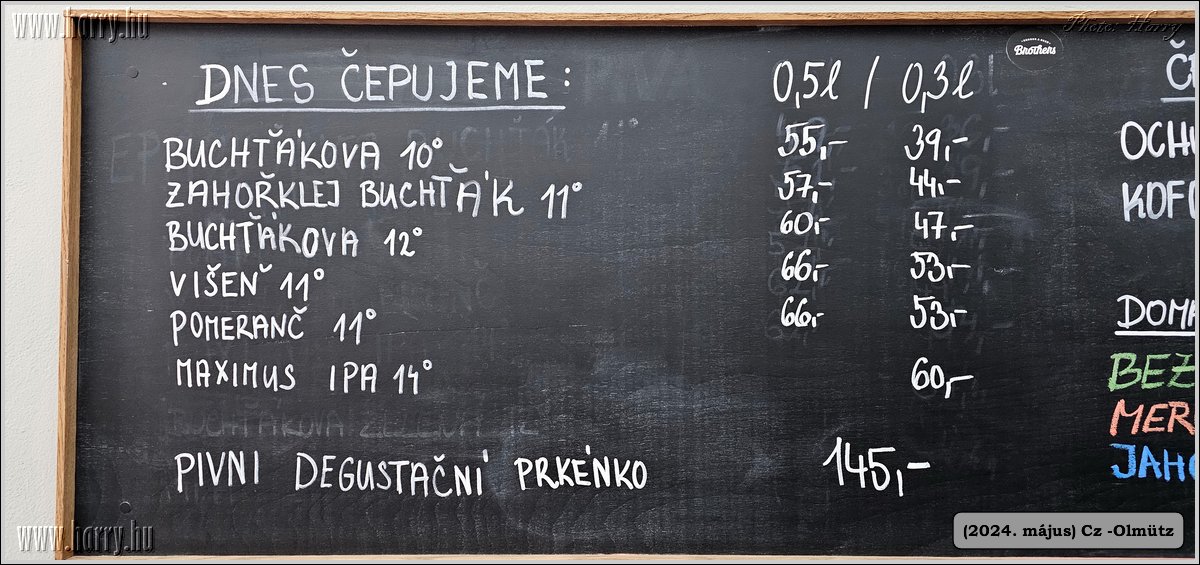 www.harry.hu
Photo: Harry
Brothers
DNES ČEPUJEME: 0,5l / 0,3l
BUCHŤÁKOVA 10° 55,- 39,-
ZAHOŘKLEJ BUCHŤÁK 11° 57,- 44,-
BUCHŤÁKOVA 12° 60,- 47,-
VIŠEŇ 11° 66,- 53,-
POMERANČ 11° 66,- 53,-
MAXIMUS IPA 14° 60,-
PIVNÍ DEGUSTAČNÍ PRKÉNKO 145,-
OCHU
KOFO
DOMA
BEZ
MER
JAHO
www.harry.hu
(2024. május) Cz -Olmütz